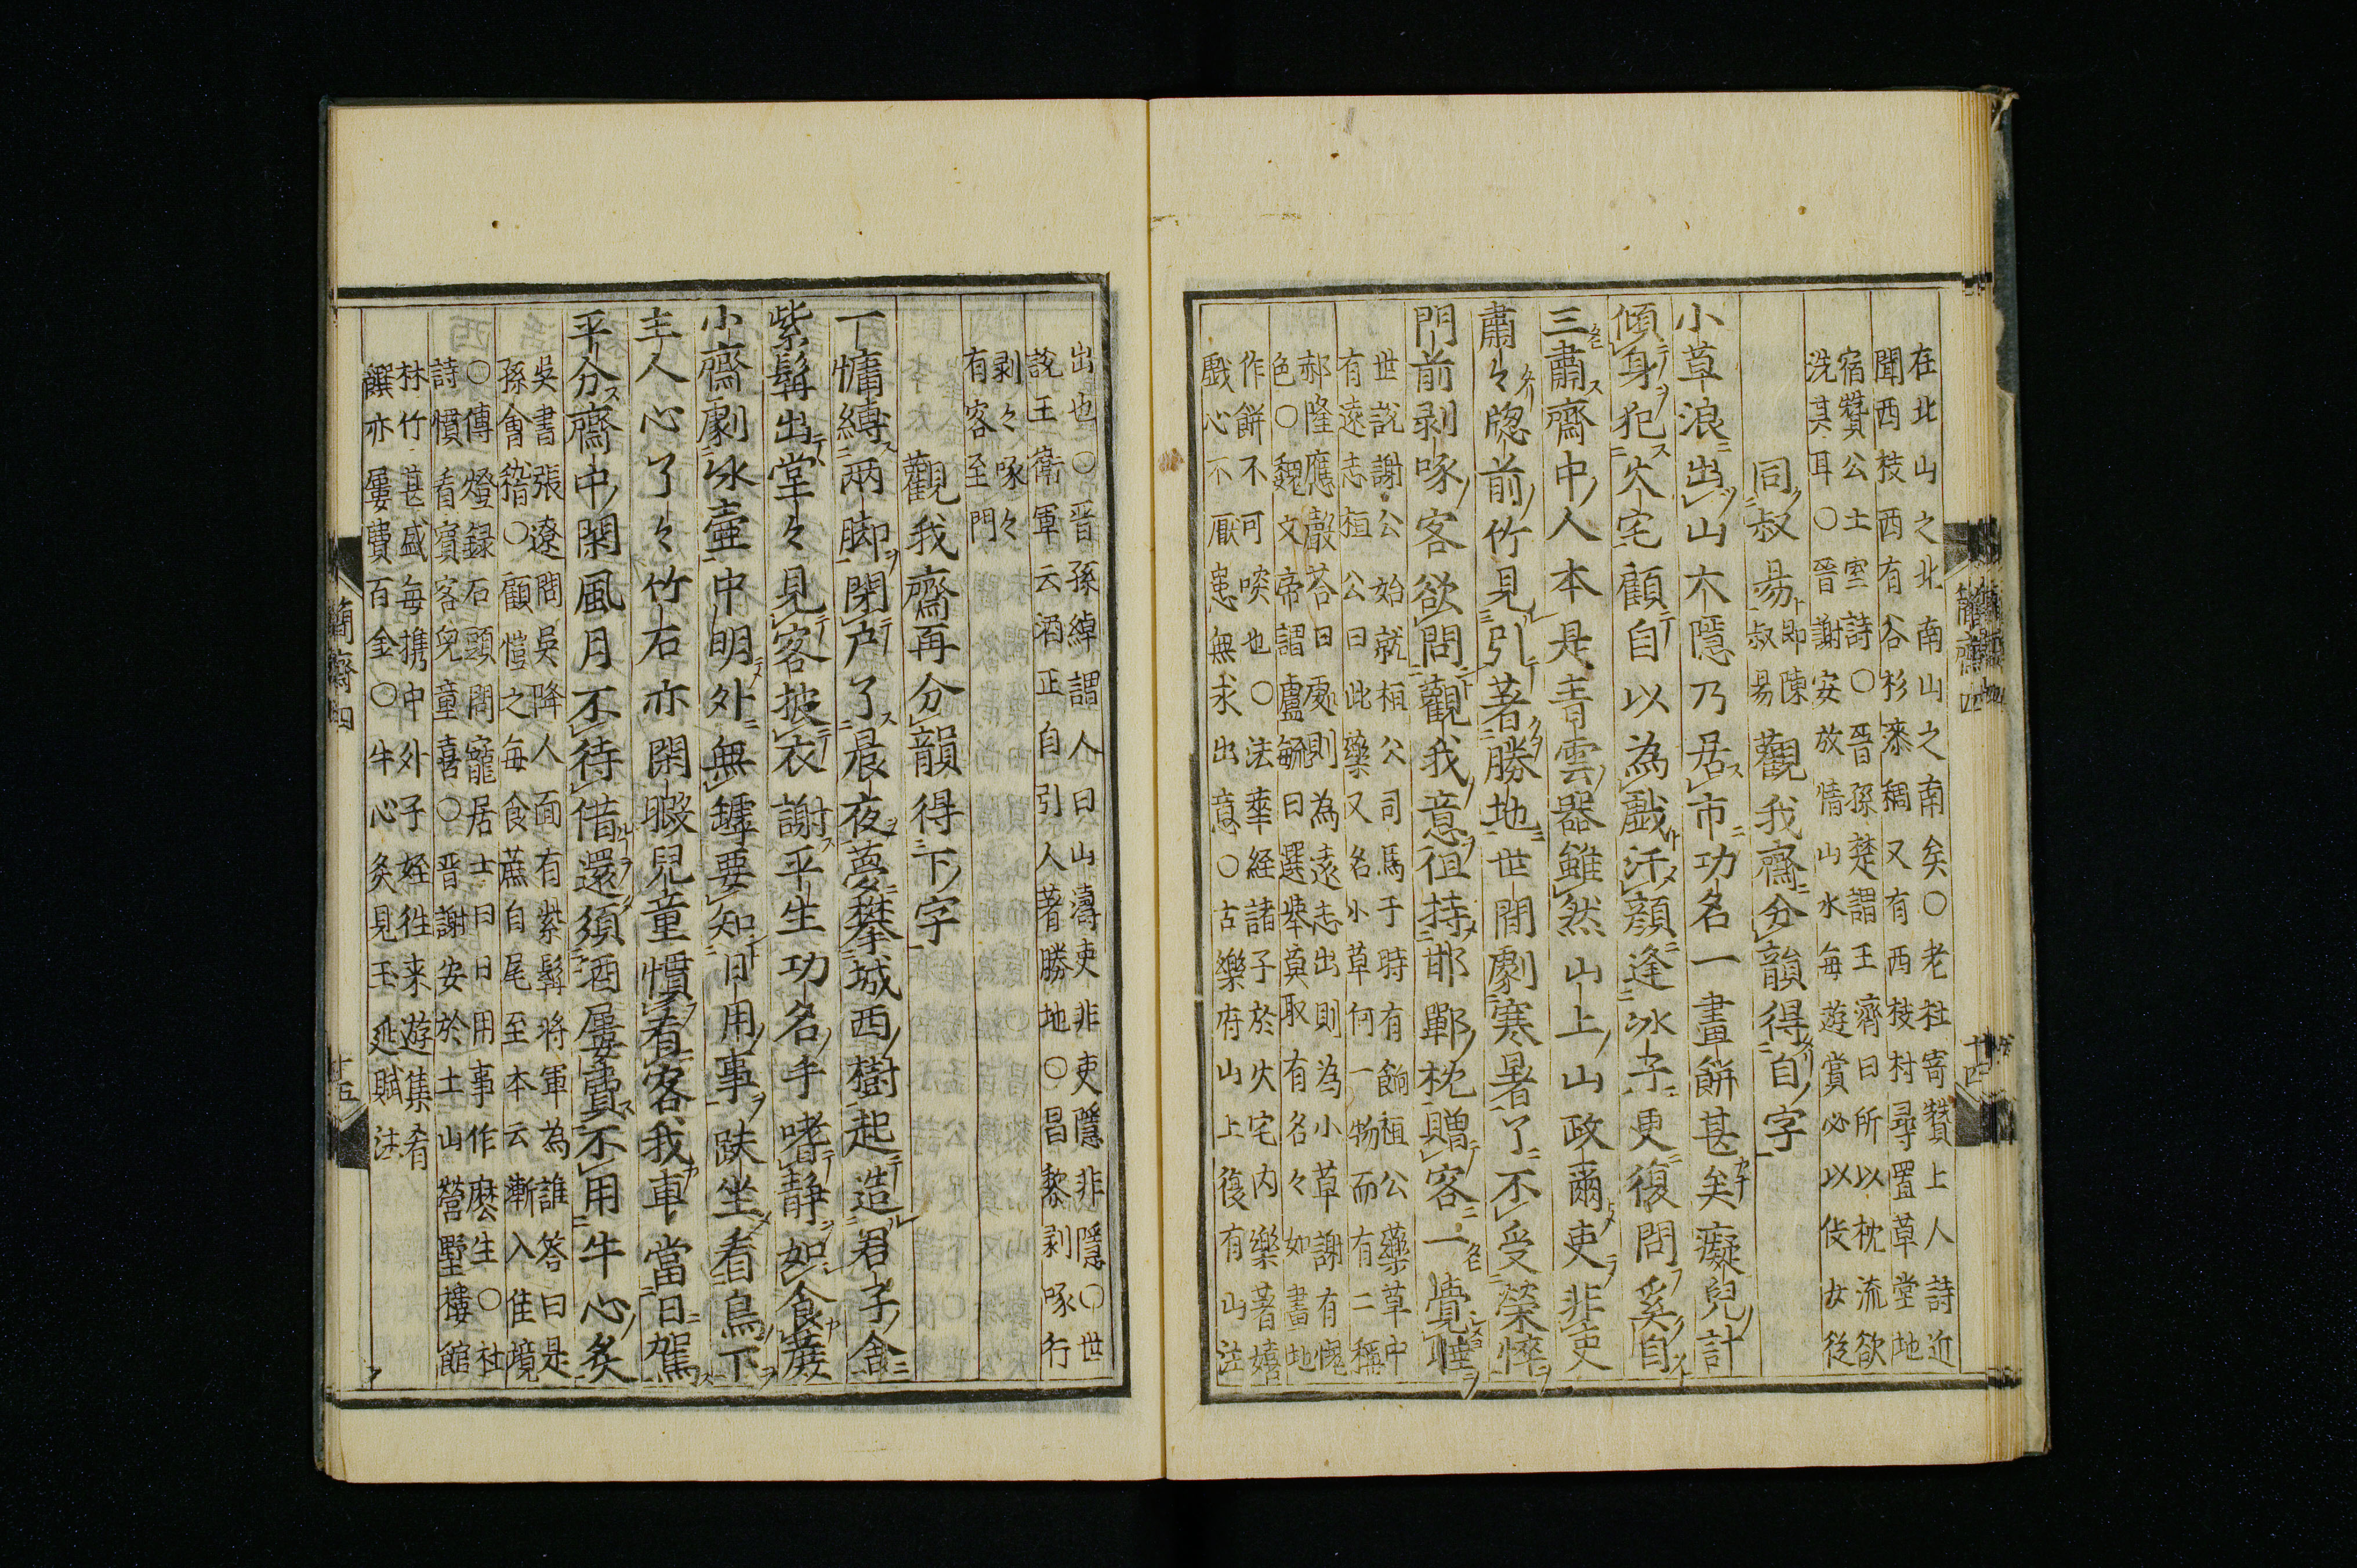 在北山之北南山之南矣〇老杜寄賛上人詩近
聞西枝西有谷杉桼稠又有西枝村尋置草堂地
宿賛公土室詩〇晉孫楚謂王濟曰所以枕流欲
洗其耳〇晉謝安放情山水每遊賞必以伎女從
同叔昜即陳叔昜觀我齋分韻得自字
小草浪出山不隱乃居市功名一畫餅甚矣癡兒計
傾身犯火宅顧自以為戲汗顔逢氷子更復問奚自
三肅齋中人本是青雲器雖然山上山政爾吏非吏
肅々牎前竹見引著勝地世間劇寒暑了不受榮悴
門前剥啄客欲問觀我意徂持邯鄲枕贈客一覺睡
世說謝公始就桓公司馬于時有餉桓公藥草中
有遠志桓公曰此藥又名小草何一物而有二稱
郝隆應聲荅曰處則為遠志出則為小草謝有愧
色〇魏文帝謂盧毓曰選舉莫取有名々如畫地
作餅不可啖也〇法華經諸子於火宅内樂著嬉
戲心不厭患無求出意〇古樂府山上復有山注
出也〇晉孫綽謂人曰山濤吏非吏隱非隱〇世
說王衛軍云酒正自引人著勝地〇昌黎剥啄行
剥々啄々
有客至門
觀我齋再分韻得下字
丁慵縛兩脚閉户了晨夜夢攀城西樹起造君子舍
紫髯出堂々見客披衣謝平生功名手嗜静如食蔗
小齋劇氷壷中明外無罅要知日用事趺坐看鳥下
主人心了々竹石亦閑暇兒童慣看客我車當日駕
平分齋中閑風月不待借還須酒屢費不用牛心炙
吳書張遼問吳降人面有紫髯將軍為誰答曰是
孫會稽〇顧愷之每食蔗自尾至本云漸入佳境
〇傳燈録石頭問龐居士曰日用事作麽生〇杜
詩慣看賓客兒童喜〇晉謝安於土山營墅樓館
林竹甚盛每携中外子姪徃来遊集肴
饌亦屢費百金〇牛心炙見玉延賦注
簡齋四
十四
簡齋四
十五